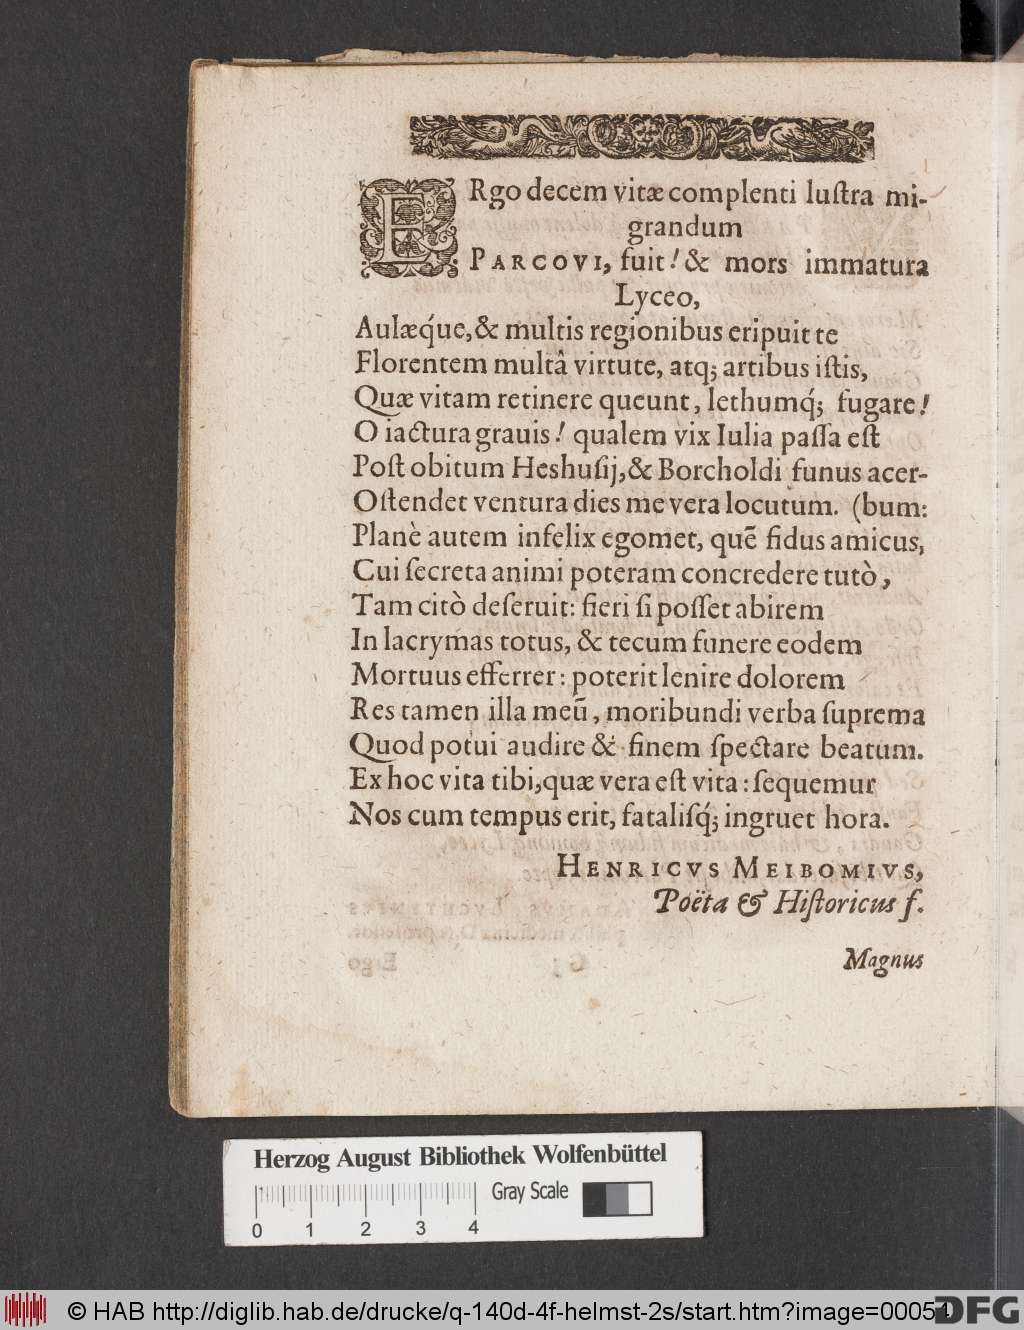 ERgo decem vitæ complenti luſtra mi-
grandum
PARCOVI, fuit! & mors immatura
Lyceo,
Aulæq́ue, & multis regionibus eripuit te
Florentem multâ virtute, atq; artibus iſtis,
Quæ vitam retinere queunt, lethumq́; fugare!
O iactura grauis! qualem vix Iulia paſſa eſt
Poſt obitum Heshuſij, & Borcholdi funus acer-
Oſtendet ventura dies me vera locutum. (bum:
Planè autem infelix egomet, quẽ fidus amicus,
Cui ſecreta animi poteram concredere tutò,
Tam citò deſeruit: fieri ſi poſſet abirem
In lacrymas totus, & tecum funere eodem
Mortuus efferrer: poterit lenire dolorem
Res tamen illa meũ, moribundi verba ſuprema
Quod potui audire & finem ſpectare beatum.
Ex hoc vita tibi, quæ vera eſt vita: ſequemur
Nos cum tempus erit, fataliſq́; ingruet hora.
HENRICVS MEIBOMIVS,
Poëta & Hiſtoricus f.
Magnus
Herzog August Bibliothek Wolfenbüttel
Gray Scale
0 1 2 3 4
© HAB http://diglib.hab.de/drucke/q-140d-4f-helmst-2s/start.htm?image=00054
DFG